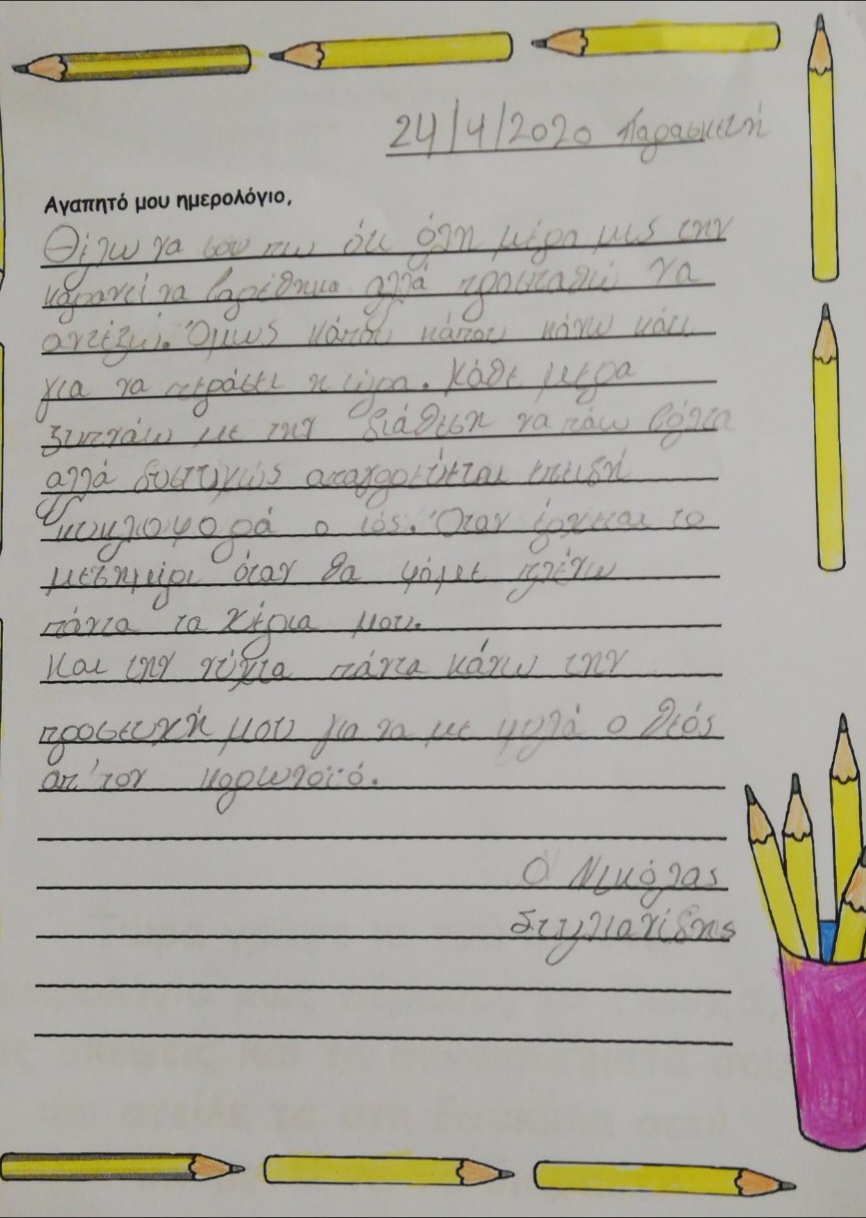 24/4/2020 Παρασκευή
Αγαπητό μου ημερολόγιο,
Θέλω να σου πω ότι όλη μέρα μες την
καραντίνα βαρέθηκα αλλά προσπαθώ να
αντέξω. Όμως κάπου κάπου κάνω κάτι
για να περάσει η ώρα. Κάθε μέρα
ξυπνάω με την διάθεση να πάω βόλτα
αλλά δυστυχώς απαγορεύεται επειδή
κυκλοφορά ο ιός. Όταν έρχεται το
μεσημέρι όταν θα φάμε πλένω
πάντα τα χέρια μου.
Και την νύχτα πάντα κάνω την
προσευχή μου για να με φυλά ο θεός
απ' τον κορωνοϊό.
Ο Νικόλας
Στυλιανίδης